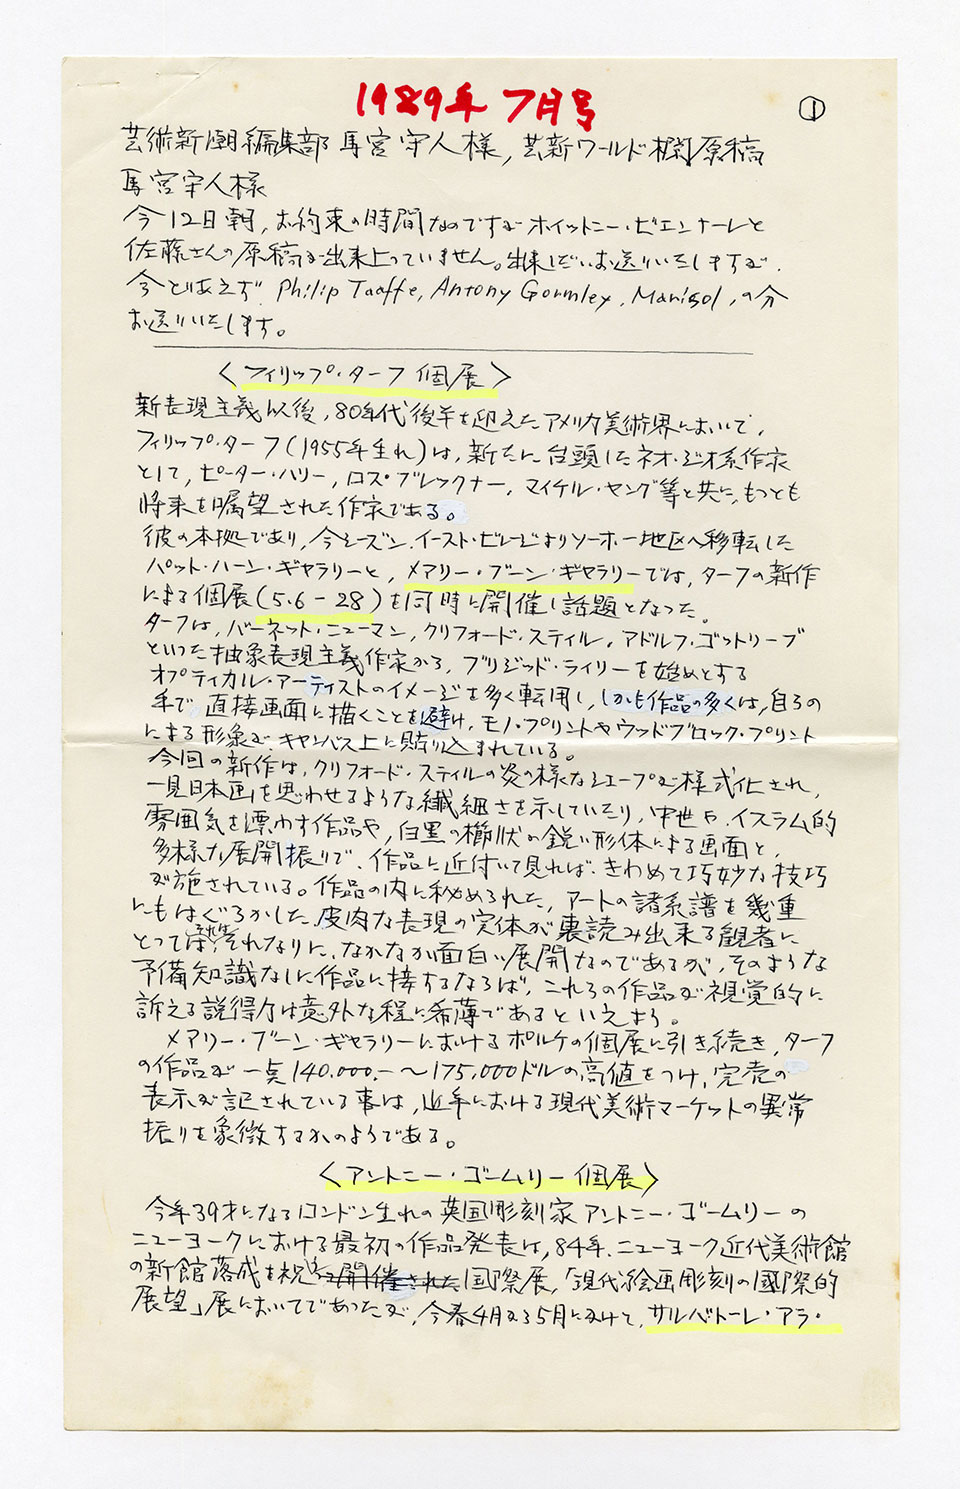 1989年7月号
①
芸術新潮編集部 馬宮守人様, 芸新ワールド欄原稿
馬宮守人様
今12日朝, お約束の時間なのですがホイットニー・ビエンナーレと
佐藤さんの原稿が出来上っていません。出来しだいお送りいたしますが、
今とりあえず Philip Taaffe, Antony Gormley, Marisol, の分
お送りいたします。
〈フィリップ・ターフ 個展〉
新表現主義以後, 80年代後半を迎えたアメリカ美術界において,
フィリップ・ターフ(1955年生れ)は, 新たに台頭したネオ・ジオ系作家
として, ピーター・ハリー, ロス・ブレックナー, マイケル・ヤング等と共に, もっとも
将来を嘱望された作家である。
彼の本拠であり, 今シーズン, イースト・ビレージよりソーホー地区へ移転した
パット・ハーン・ギャラリーと, メアリー・ブーン・ギャラリーでは, ターフの新作
による個展(5.6-28)を同時に開催し話題となった。
ターフは, バーネット・ニューマン, クリフォード・スティル, アドルフ・ゴットリーブ
といった抽象表現主義作家から, ブリジッド・ライリーを始めとする
オプティカル・アーティストのイメージを多く転用し, しかも作品の多くは, 自らの
手で直接画面に描くことを避け, モノ・プリントやウッドブロック・プリント
による形象が, キャンバス上に貼り込まれている。
今回の新作は, クリフォード・スティルの炎の様なシェープが様式化され,
一見日本画を思わせるような繊細さを示していたり, 中世や, イスラム的
雰囲気を漂わす作品や, 白黒の櫛状の鋭い形体による画面と,
多様な展開振りで, 作品に近付いて見れば, きわめて巧妙な技巧
が施されている。作品の内に秘められた, アートの諸系譜を幾重
にもはぐらかした皮肉な表現の実体が裏読み出来る観者に
とっては, それなりに, なかなか面白い展開なのであるが, そのような
予備知識なしに作品に接するならば, これらの作品が視覚的に
訴える説得力は意外な程に希薄であるといえよう。
メアリー・ブーン・ギャラリーにおけるポルケの個展に引き続き, ターフ
の作品が一点140,000.-〜175,000ドルの高値をつけ, 完売の
表示が記されている事は, 近年における現代美術マーケットの異常
振りを象徴するかのようである。
〈アントニー・ゴームリー 個展〉
今年39才になるロンドン生れの英国彫刻家アントニー・ゴームリーの
ニューヨークにおける最初の作品発表は, 84年, ニューヨーク近代美術館
の新館落成を祝う開催された国際展,「現代絵画彫刻の國際的
展望」展においてであったが, 今春4月から5月にかけて, サルバトーレ・アラ・